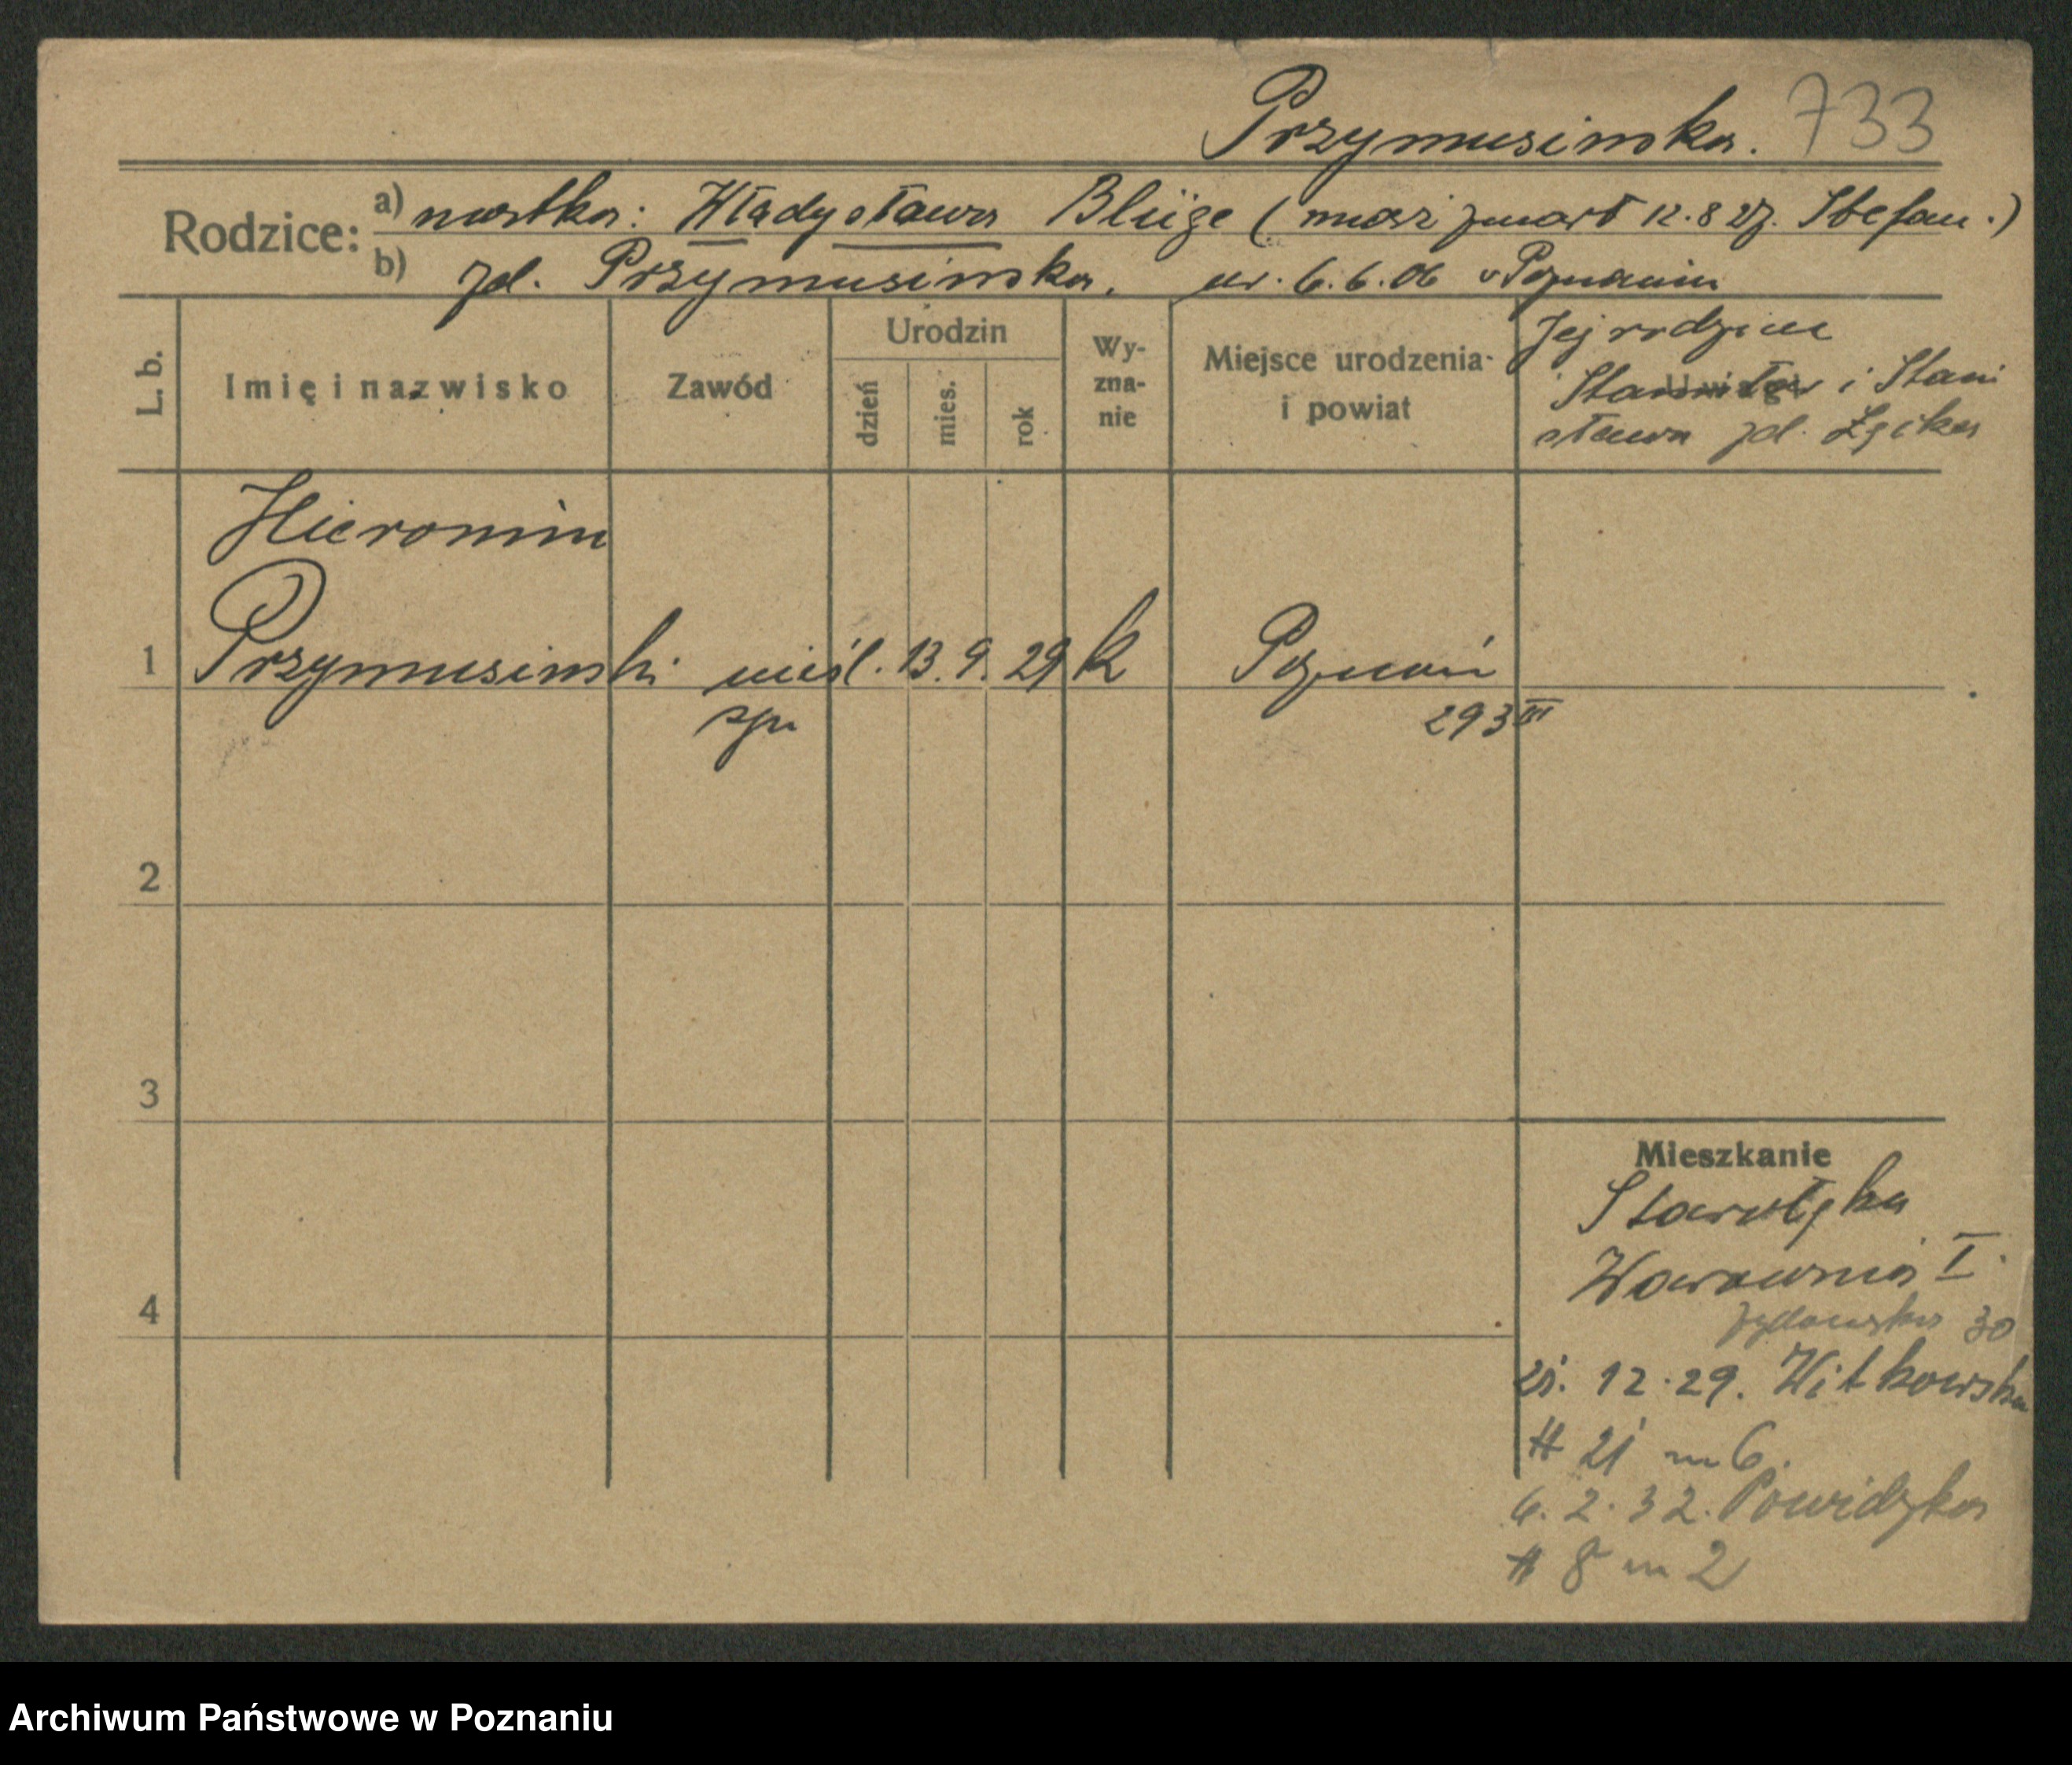 Przymusinska. 733
Rodzice: a) matka: Władysława Blüge (mąż zmarł 12.8 27. Stefan.)
b) zd. Przymusinska. ur. 6.6.06 w Poznaniu
L. b. Imię i nazwisko Zawód Urodzin dzień mies. rok Wy-zna-nie Miejsce urodzenia i powiat
Jej rodzice
Stanisław i Stani
sława zd.
Hieronim
1 Przymusinski nieśl. 13. 9. 29 k Poznań
syn 293 III
2
3
4
Mieszkanie
Starołęka
Warownia I
Żydowska 30
21. 12. 29. Witkowska
# 21 m 6.
6. 2. 32. Powidzka
# 8 m 2
Archiwum Państwowe w Poznaniu